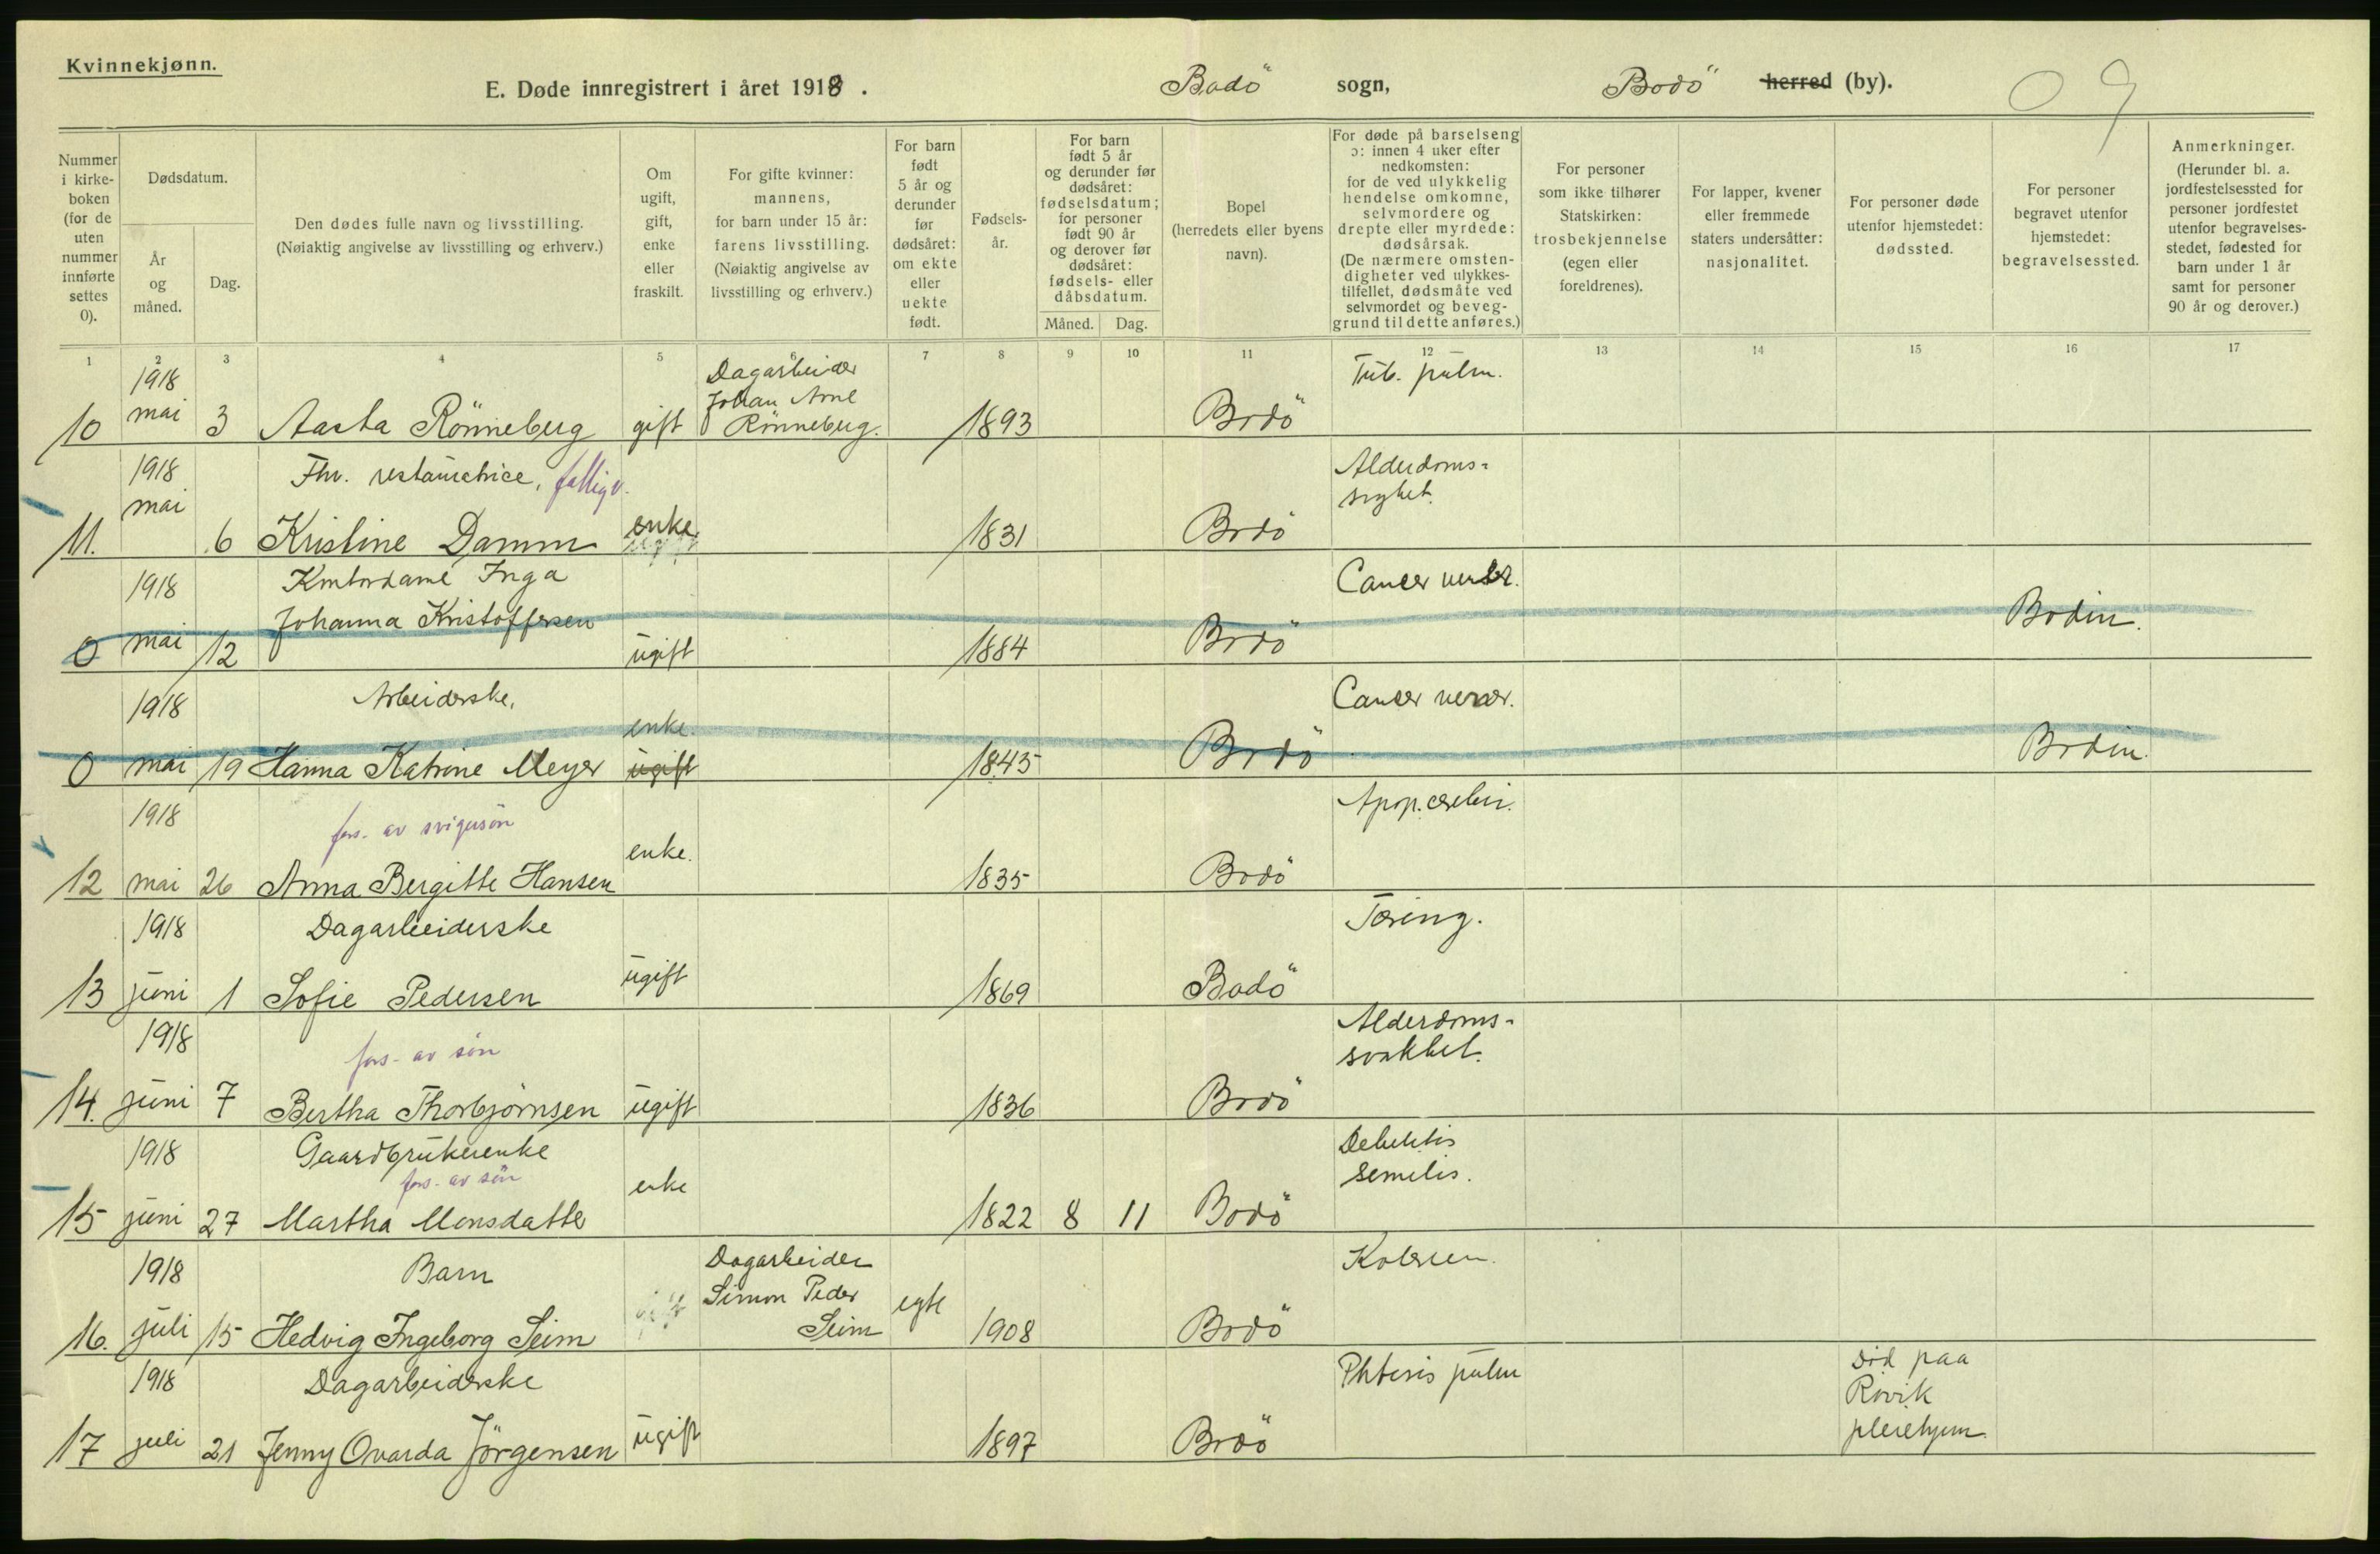 Kvinnekjønn.
E. Døde innregistrert i året 1918.
Bodö sogn,
Bodö herred (by).
09
Nummer i kirke-boken (for de uten nummer innførte settes 0).
Dødsdatum.
År og måned.
Dag.
Den dødes fulle navn og livsstilling.
(Nøiaktig angivelse av livsstilling og erhverv.)
Om ugift, gift, enke eller fraskilt.
For gifte kvinner: mannens, for barn under 15 år: farens livsstilling. (Nøiaktig angivelse av livsstilling og erhverv.)
For barn født 5 år og derunder før dødsåret: om ekte eller uekte født.
Fødsels-år.
For barn født 5 år og derunder før dødsåret: fødselsdatum; for personer født 90 år og derover før dødsåret: fødsels- eller dåbsdatum.
Måned. Dag.
Bopel (herredets eller byens navn).
For døde på barselseng ɔ: innen 4 uker efter nedkomsten: for de ved ulykkelig hendelse omkomne, selvmordere og drepte eller myrdede: dødsårsak. (De nærmere omsten-digheter ved ulykkes-tilfellet, dødsmåte ved selvmordet og beveg-grund til dette anføres.)
For personer som ikke tilhører Statskirken: trosbekjennelse (egen eller foreldrenes).
For lapper, kvener eller fremmede staters undersåtter: nasjonalitet.
For personer døde utenfor hjemstedet: dødssted.
For personer begravet utenfor hjemstedet: begravelsessted.
Anmerkninger. (Herunder bl. a. jordfestelsessted for personer jordfestet utenfor begravelses-stedet, fødested for barn under 1 år samt for personer 90 år og derover.)
1 2 3 4 5 6 7 8 9 10 11 12 13 14 15 16 17
1918 Dagarbeider Tub. pulm.
Johan Arne
10 mai 3 Aasta Rönneberg gift Rönneberg. 1893 Bodö
1918 Fhv. restauratrice, fattigv. Alderdoms-
mai
11. 6 Kristine Damm enke 1831 Bodö
1918 Kontordame Inga Cancer
Johanna Kristoffersen
0 mai 12 ugift 1884 Bodö Bodin.
1918 Arbeiderske. Cancer
enke.
0 mai 19 Hanna Katrine Meyer ugift 1845 Bodö Bodin.
1918 Apop. cerebri.
fors. av svigersön
12 mai 26 Anna Bergitte Hansen enke. 1835 Bodö
1918 Dagarbeiderske Tæring.
13 juni 1 Sofie Pedersen ugift 1869 Bodö
1918 Alderdoms-
fors. av sön svakhet.
14. juni 7 Bertha Thorbjörnsen ugift 1836 Bodö
1918 Gaardbrukerenke Debelitis
fors. av sön senilis.
15 juni 27 Martha Monsdatter enke 1822 8 11 Bodö
1918 Barn Dagarbeider
Simon Peder
16. juli 15 Hedvig Ingeborg Seim Seim egte 1908 Bodö
1918 Dagarbeiderske Phtisis pulm död paa
Rövik
17 juli 21 Jenny Ovarda Jörgensen ugift 1897 Bodö pleiehjem.